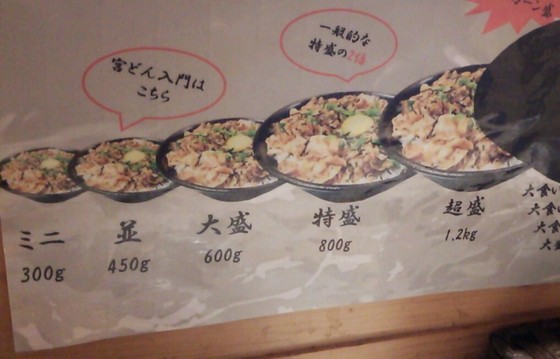 宮どん入門は
こちら
一般的な
特盛の2倍
ミニ
300g
並
450g
大盛
600g
特盛
800g
超盛
1.2kg
大食い
大食
大食
大